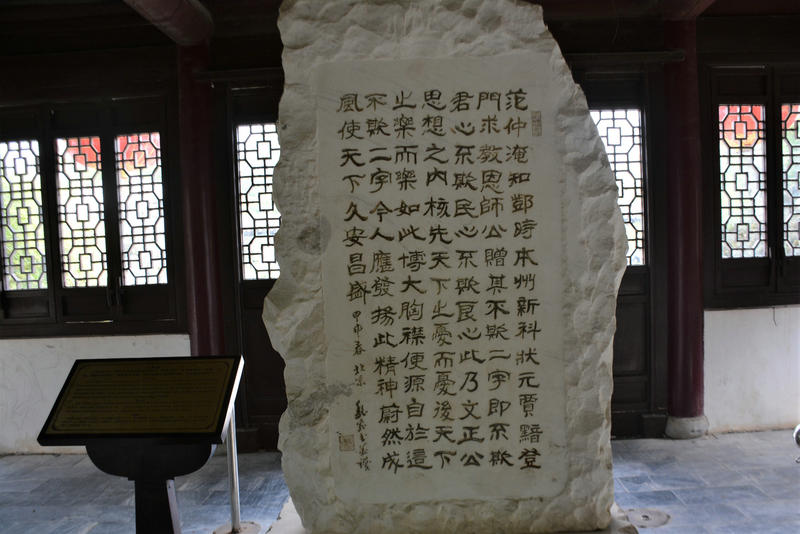 范仲淹知鄧時本州新科狀元賈黯登
門求教恩師公贈其不欺二字即不欺
君心不欺民心不欺良心此乃文正公
思想之內核先天下之憂而憂後天下
之樂而樂如此博大胸襟使源自於這
不欺二字令人應發揚此精神蔚然成
風使天下久安昌盛
甲申春北京